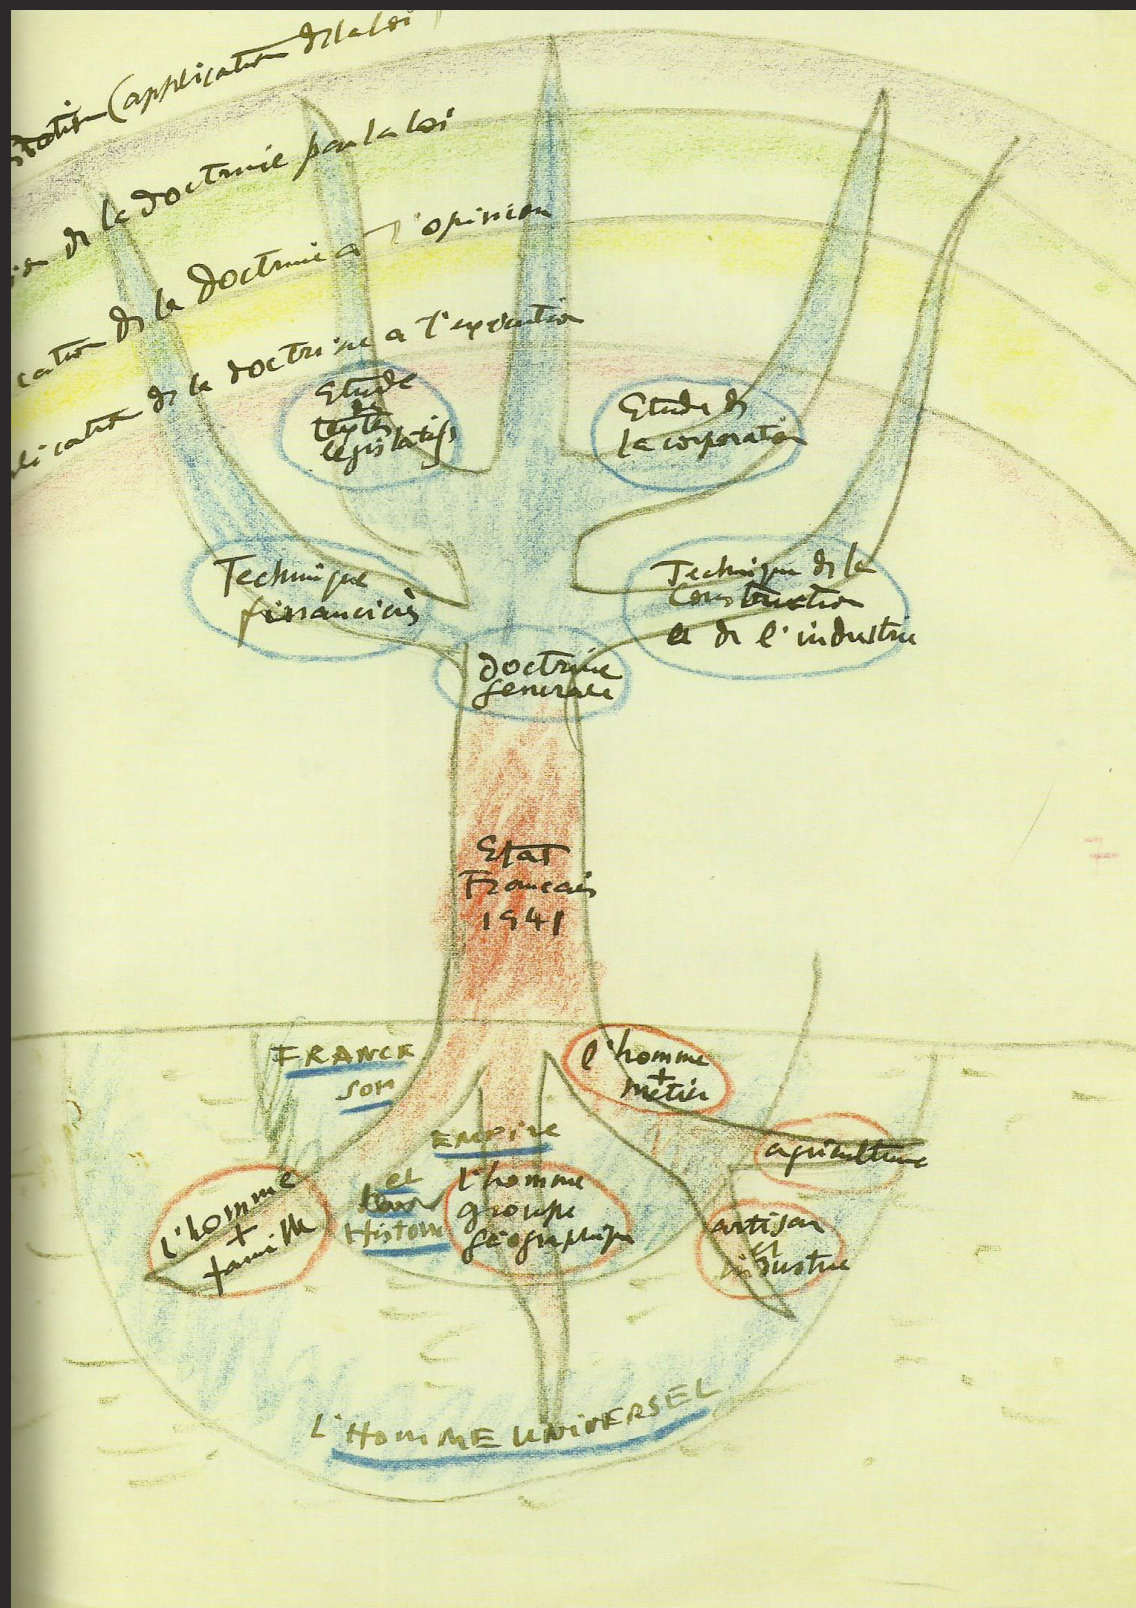 (application de la loi
de la doctrine par la loi
cation de la doctrine a l'opinion
lication de la doctrine a l'exécution
Etude
de
textes
legislatifs
Etude de
la corporation
Technique
financière
Technique de la
Construction
et de l'industrie
doctrine
generale
Etat
Francais
1941
FRANCE
SON
EMPIRE
et
leur
Histoire
l'homme
+
métier
agriculture
l'homme
+
famille
l'homme
groupe
géographique
artisan
et
industrie
L'HOMME UNIVERSEL